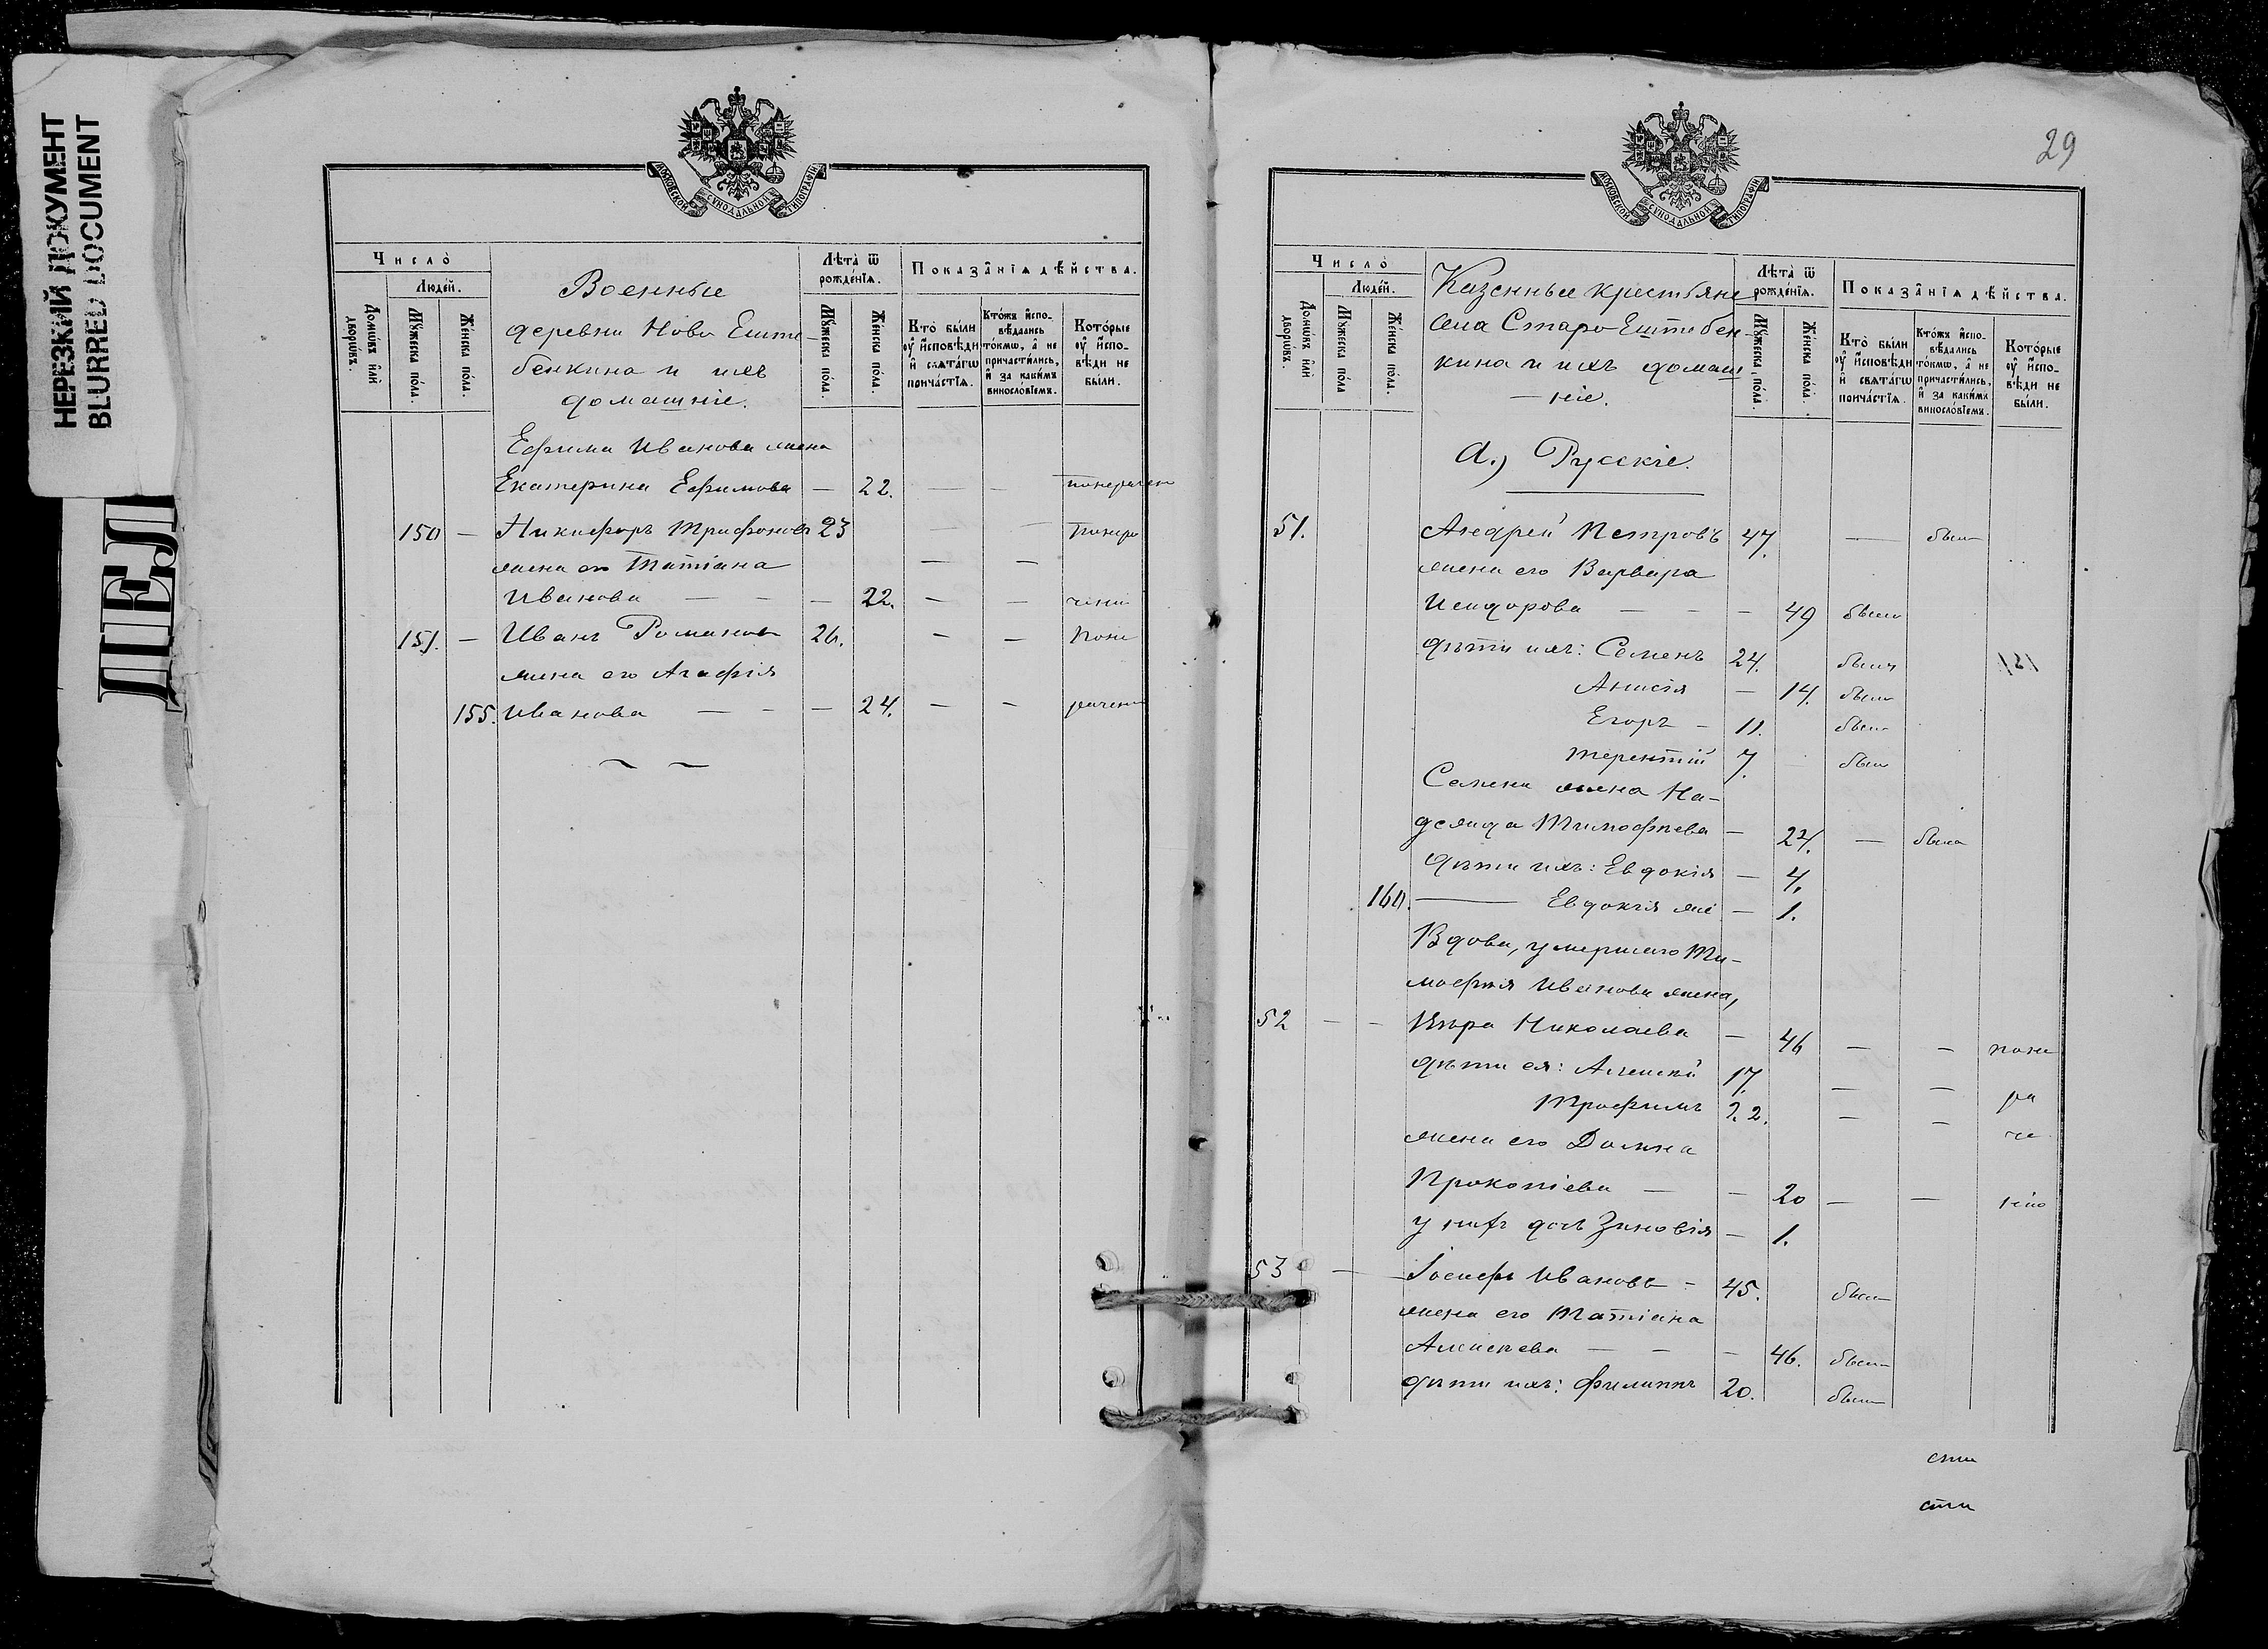 НЕРЕЗКИЙ ДОКУМЕНТ
BLURRED DOCUMENT
МОСКОВСКОЙ СѴНОДАЛЬНОЙ ТИПОГРАФІИ
Число̀
Людéй.
Домѡ́въ и҆лѝ дворѡ́въ.
Мꙋ́жеска по́ла.
Же́нска по́ла.
Военные
деревни Ново Еште-
бенкина и ихъ
домашніе.
Лѣ́та ѿ рожде́нїѧ.
Мꙋ́жеска по́ла.
Же́нска по́ла.
Показа̑нїѧ дѣ́йства.
Кто̀ бы́ли ᲂу҆ и҆сповѣ́ди и҆ свѧта́гѡ прича́стїѧ.
Кто́жъ и҆спо-вѣ́дались то́кмѡ, а҆ не причасти́лись, и҆ за каки́мъ винослові́емъ.
Кото́рые ᲂу҆ и҆спо-вѣ́ди не бы́ли.
Ефима Иванова жена
Екатерина Ефимова — 22. — —
150 — Никифоръ Трифоновъ 23 — —
жена его Татіана — —
Иванова — — — 22. — —
151. — Иванъ Романовъ 26. — —
жена его Агафія
155. Иванова — — — 24. — —
29
МОСКОВСКОЙ СѴНОДАЛЬНОЙ ТИПОГРАФІИ
Число̀
Людéй.
Домѡ́въ и҆лѝ дворѡ́въ.
Мꙋ́жеска по́ла
Же́нска по́ла.
Казенные крестьяне
села Старо Ештебен-
кина и ихъ домаш
—ніе.
Лѣ́та ѿ рожде́нїѧ.
Мꙋ́жеска по́ла.
Же́нска по́ла.
Показа̑нїѧ дѣ́йства.
Кто̀ бы́ли ᲂу҆ и҆сповѣ́ди и҆ свѧта́гѡ прича́стїѧ.
Кто́жъ и҆спо-вѣ́дались то́кмѡ, а҆ не причасти́лись, и҆ за каки́мъ винослові́емъ.
Кото́рые ᲂу҆ и҆спо-вѣ́ди не бы́ли.
а.) Русскіе.
51. Андрей Петровъ 47. — былъ
жена его Варвара
Исидорова — — — 49 была
дѣти ихъ: Семенъ 24. былъ
Анисія — 14. была
Егоръ — 11. былъ
Терентій 7. былъ
Семена жена На-
дежда Тимофѣева — 24. — была
дѣти ихъ: Евдокія — 4.
160. — Евдокія же — 1.
Вдова, умершаго Ти-
мофѣя Иванова жена,
52 — — Вѣра Николаева — 46 — — по не
дѣти ея: Алексѣй 17. — — ра
Трофимъ 22. — — че
жена его Домна
Прокопіева — — 20 — — нію
у нихъ дочь Зиновія — 1.
53 — Іосифъ Ивановъ — 45. былъ
жена его Татіана
Алексѣева — — — 46. была
дѣти ихъ: Филиппъ 20. былъ